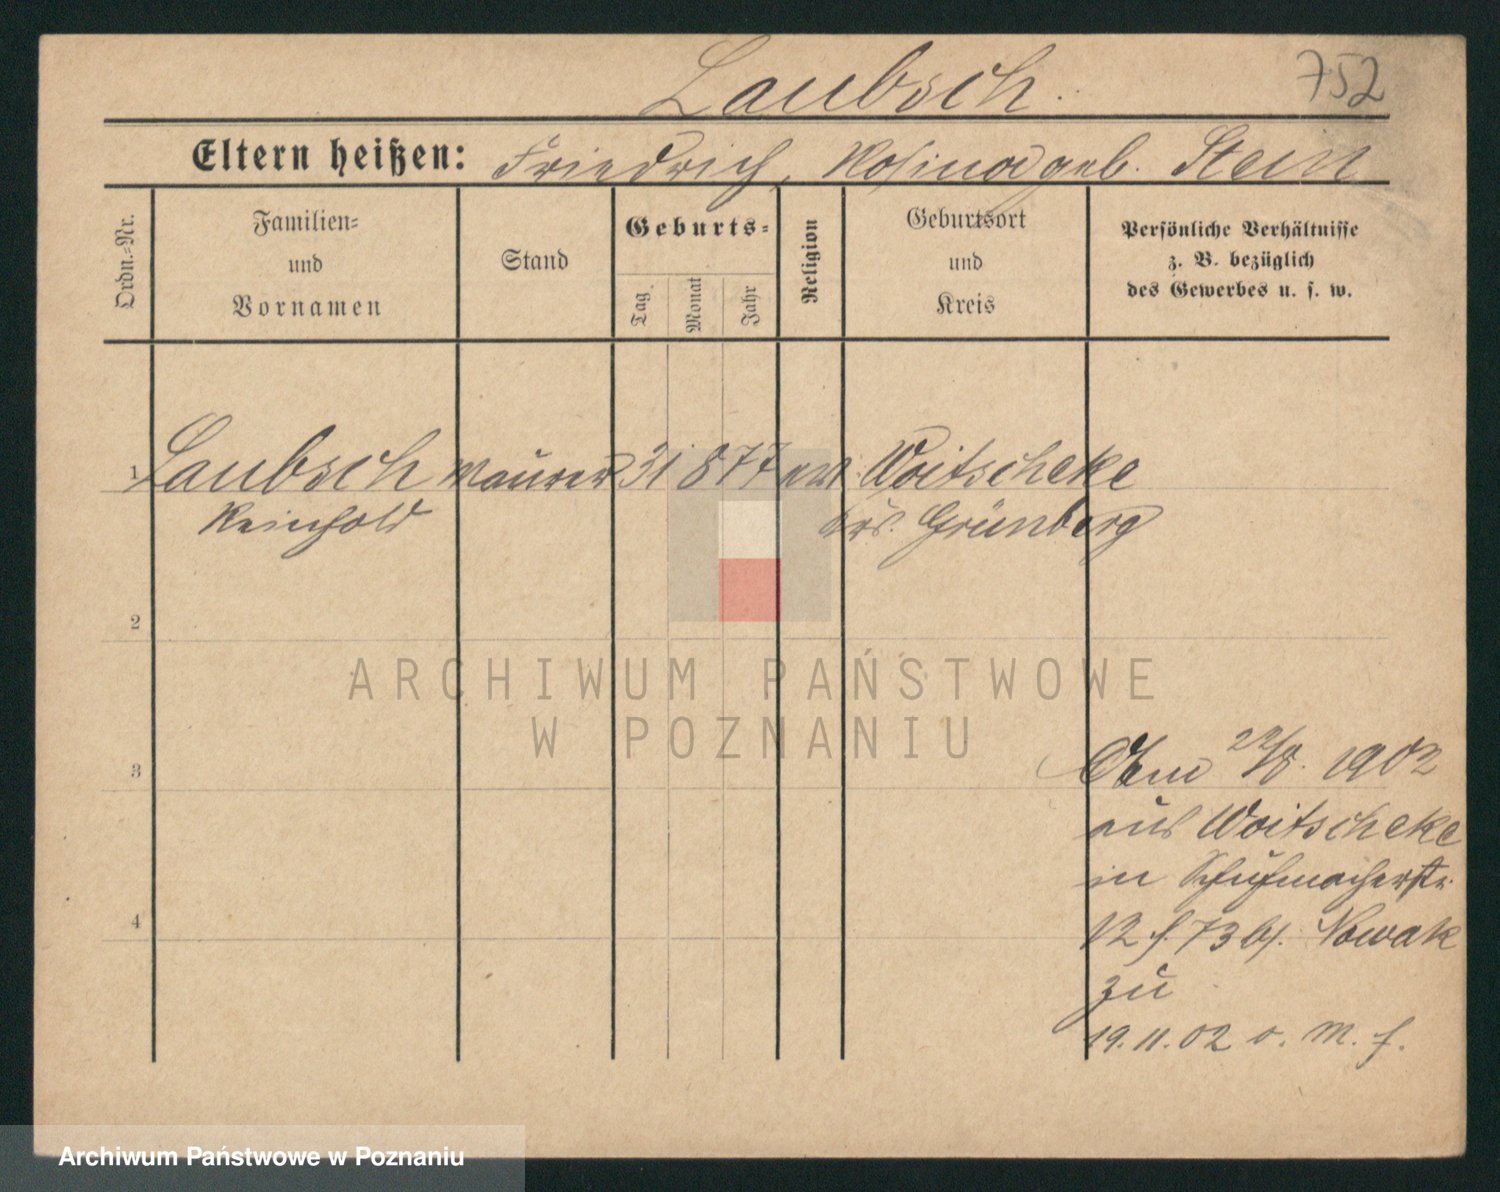 Laubsch.
752
Eltern heißen: Friedrich, Rosina geb. Stein
Ordn.-Nr.
Familien-
und
Vornamen
Stand
Geburts-
Tag
Monat
Jahr
Religion
Geburtsort
und
Kreis
Persönliche Verhältnisse
z. B. bezüglich
des Gewerbes u. s. w.
1 Laubsch Maurer 31 8 77 ev. Woitscheke
Reinhold Krs. Grünberg
2
ARCHIWUM PAŃSTWOWE
W POZNANIU
3
22/8. 1902
aus Woitscheke
in Schuhmacherstr.
12 f. 73 b/. Nowak
zu
4
19. 11. 02 o. M. f.
Archiwum Państwowe w Poznaniu